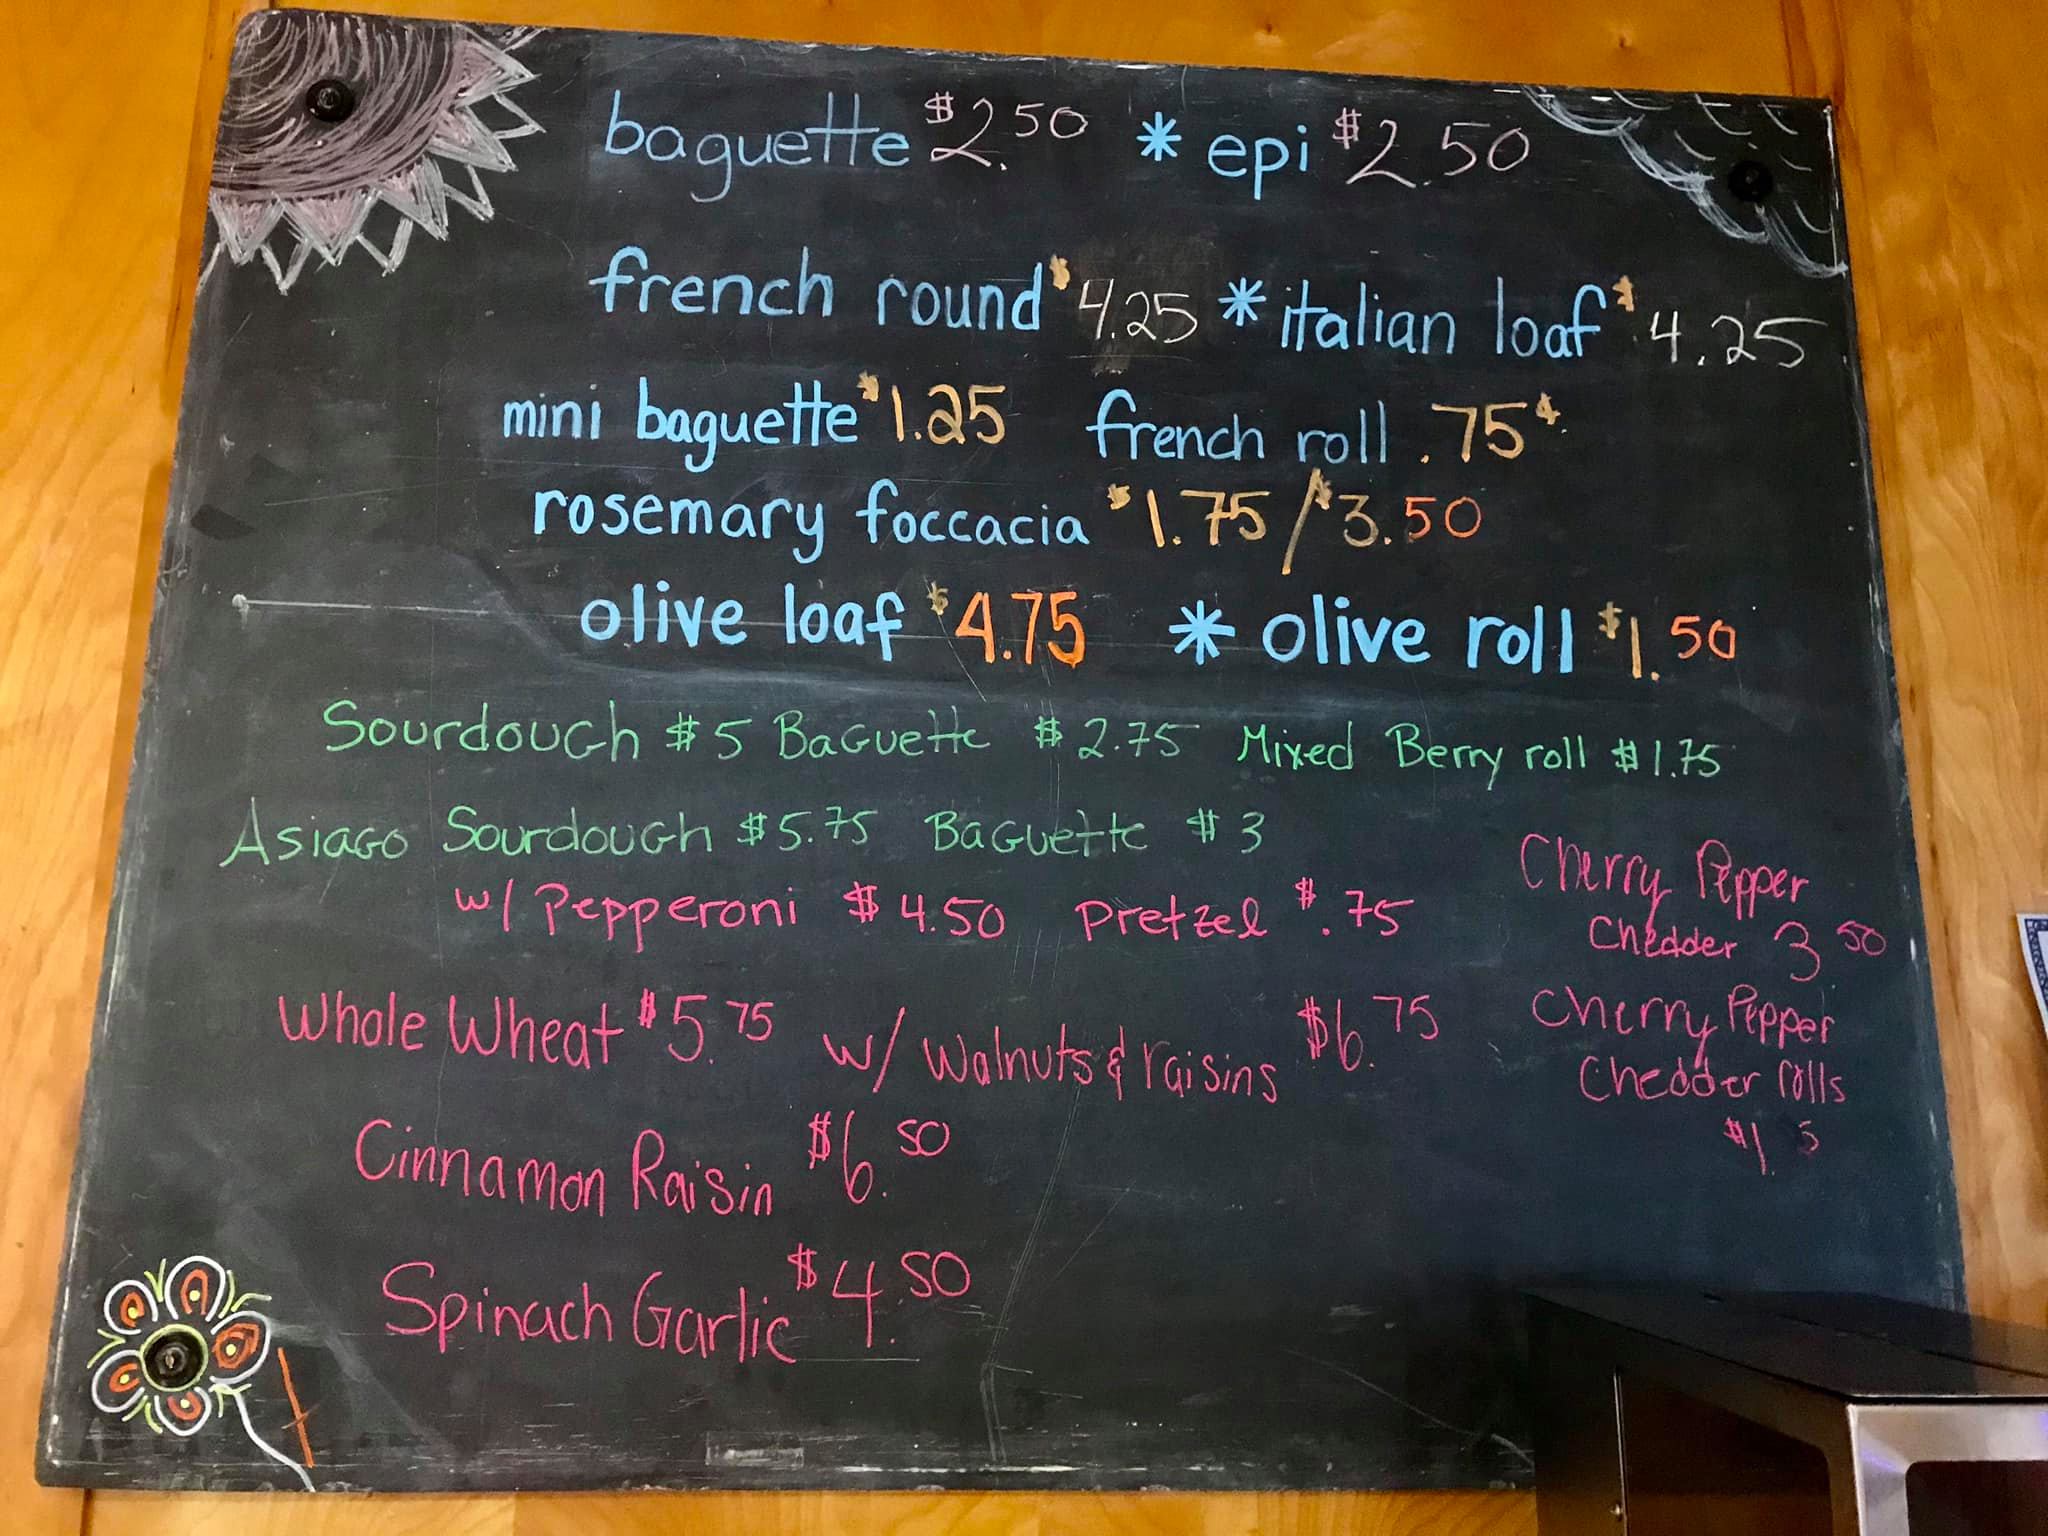 baguette $2.50 * epi $2.50
french round $4.25 * italian loaf $4.25
mini baguette $1.25 french roll .75¢
rosemary foccacia $1.75 / $3.50
olive loaf $4.75 * olive roll $1.50
Sourdough $5 Baguette $2.75 Mixed Berry roll $1.75
Asiago Sourdough $5.75 Baguette $3
w/ Pepperoni $4.50 Pretzel $.75
Cherry Pepper
Chedder 3 50
Whole Wheat $5.75 w/ Walnuts & raisins $6.75
Cherry Pepper
Chedder rolls
Cinnamon Raisin $6.50
Spinach Garlic $4.50